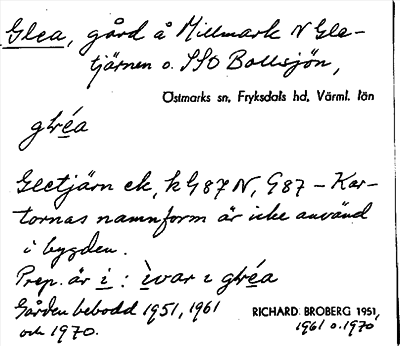 Glea, gård å Millmark N Gle-
tjärnen o. SSO Bollsjön,
Östmarks sn, Fryksdals hd, Värml. län
Gletjärn ek, k G 87 N, G 87 – Kar-
tornas namnform är icke använd
i bygden.
Prep. är i :
Gården bebodd 1951, 1961
och 1970.
RICHARD BROBERG 1951,
1961 o. 1970